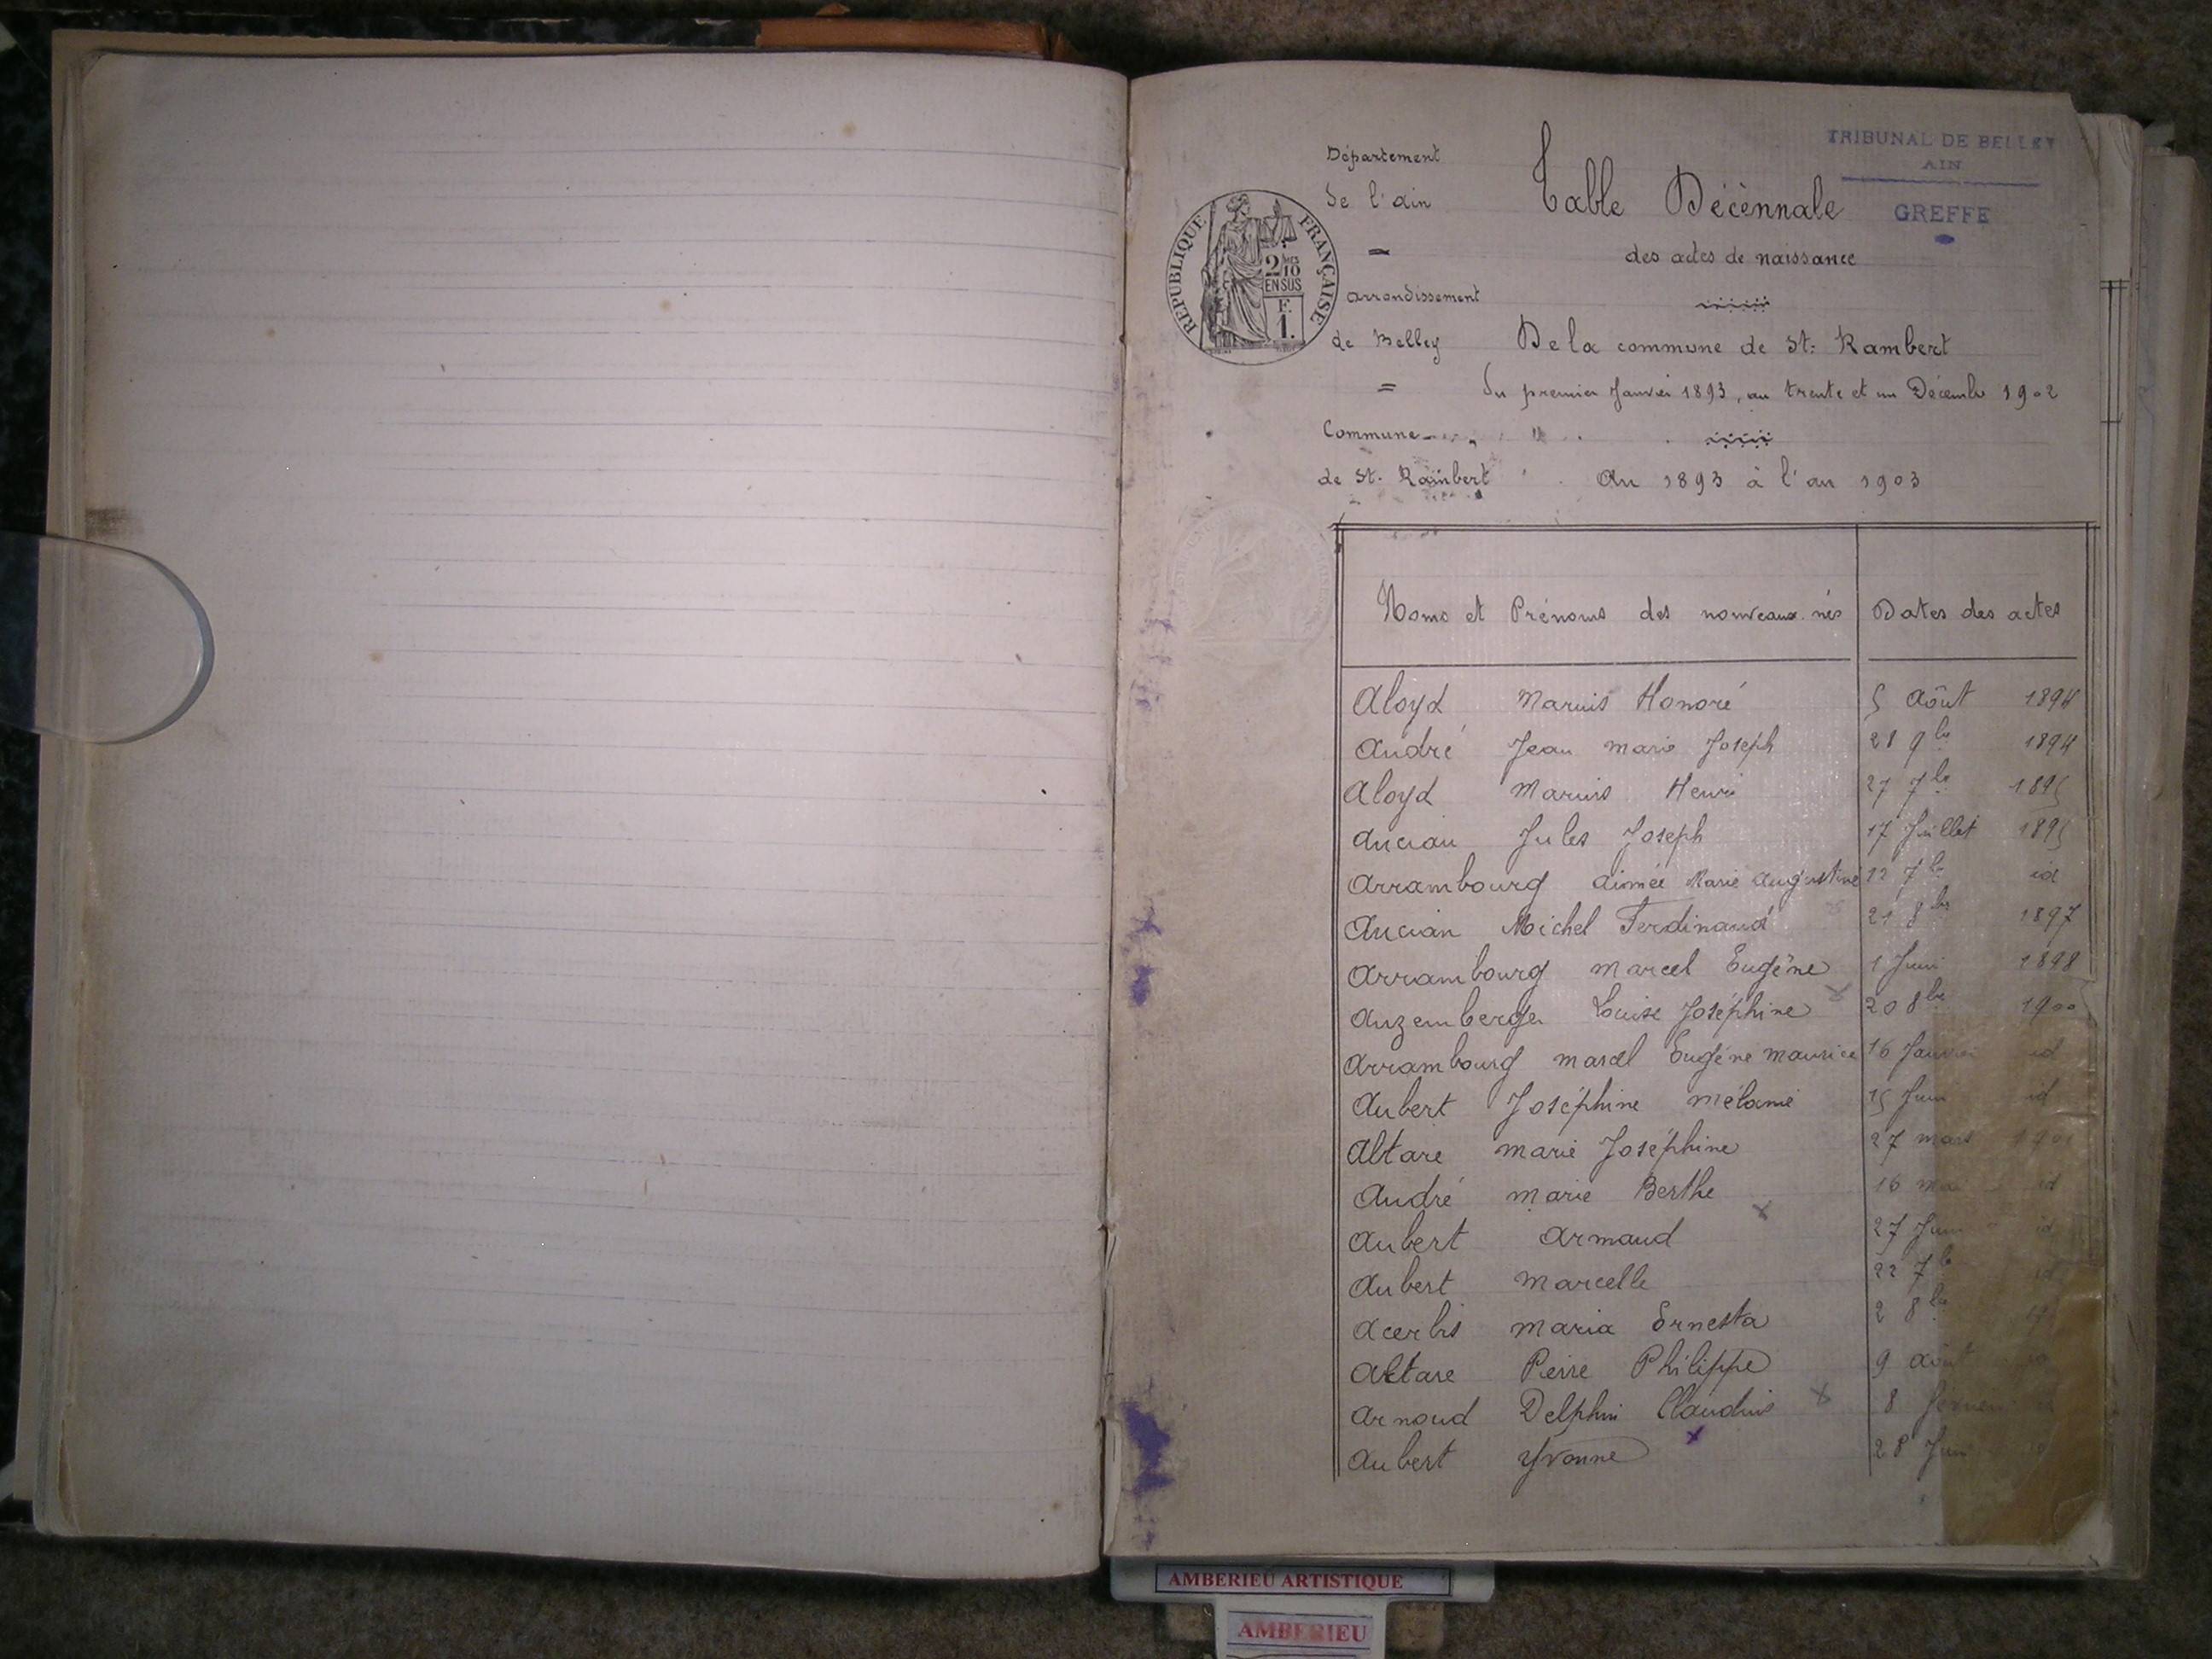 TRIBUNAL DE BELLEY
AIN
GREFFE
Département
de l'ain
Table Décènnale
des actes de naissance
RÉPUBLIQUE FRANÇAISE
2/10
EN SUS
F.
1.
arrondissement
de Belley
De la commune de St: Rambert
=
du premier Janvier 1893, au trente et un Décembre 1902
Commune
de St. Rambert
An 1893 à l'an 1903
Noms et Prénoms des nouveaux nés Dates des actes
Aloyd Marius Honoré 5 Août 1894
André Jean Marie Joseph 28 9bre 1894
Aloyd Marius Henri 27 7bre 1895
Ancian Jules Joseph 17 Juillet 1895
Arrambourg Aimée Marie Augustine 12 7bre id
Ancian Michel Ferdinand 21 8bre 1897
Arrambourg Marcel Eugène 1 Juin 1898
Anzemberger Louise Joséphine 20 8bre 1900
Arrambourg Marcel Eugène Maurice 16 Janvier id
Aubert Joséphine Mélanie 15 Juin id
Altare Marie Joséphine 27 mars 1901
André Marie Berthe 16 mai id
Aubert Armand 27 Juin id
Aubert Marcelle 22 7bre id
Acerbis Maria Ernesta 2 8bre
Altare Pierre Philippe 9 août
Arnoud Delphin Claudius 8
Aubert Yvonne 28 Juin
AMBERIEU ARTISTIQUE
AMBERIEU